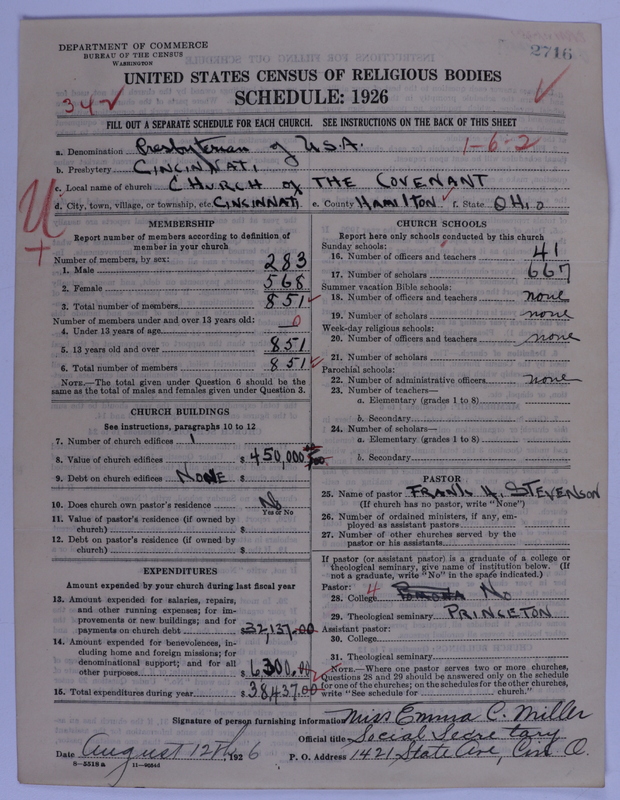 DEPARTMENT OF COMMERCE
BUREAU OF THE CENSUS
WASHINGTON
2716
UNITED STATES CENSUS OF RELIGIOUS BODIES
SCHEDULE: 1926
342
FILL OUT A SEPARATE SCHEDULE FOR EACH CHURCH. SEE INSTRUCTIONS ON THE BACK OF THIS SHEET
a. Denomination Presbyterian of U.S.A. 1-6-2
b. Presbytery CINCINNATI
c. Local name of church CHURCH of THE COVENANT
d. City, town, village, or township, etc. CINCINNATI e. County HAMILTON f. State OHIO
MEMBERSHIP
Report number of members according to definition of
member in your church
Number of members, by sex:
1. Male 283
2. Female 568
3. Total number of members 851
Number of members under and over 13 years old:
4. Under 13 years of age 0
5. 13 years old and over 851
6. Total number of members 851
NOTE.—The total given under Question 6 should be the
same as the total of males and females given under Question 3.
CHURCH BUILDINGS
See instructions, paragraphs 10 to 12
7. Number of church edifices 1
8. Value of church edifices $ 450,000
9. Debt on church edifices NONE $
10. Does church own pastor's residence No
Yes or No
11. Value of pastor's residence (if owned by
church) $
12. Debt on pastor's residence (if owned by
church) $
EXPENDITURES
Amount expended by your church during last fiscal year
13. Amount expended for salaries, repairs,
and other running expenses; for im-
provements or new buildings; and for
payments on church debt $ 32,137.00
14. Amount expended for benevolences, in-
cluding home and foreign missions; for
denominational support; and for all
other purposes $ 6,300.00
15. Total expenditures during year $ 38,437.00
CHURCH SCHOOLS
Report here only schools conducted by this church
Sunday schools:
16. Number of officers and teachers 41
17. Number of scholars 667
Summer vacation Bible schools:
18. Number of officers and teachers none
19. Number of scholars none
Week-day religious schools:
20. Number of officers and teachers none
21. Number of scholars
Parochial schools:
22. Number of administrative officers none
23. Number of teachers—
a. Elementary (grades 1 to 8)
b. Secondary
24. Number of scholars—
a. Elementary (grades 1 to 8)
b. Secondary
PASTOR
25. Name of pastor FRANK H. STEVENSON
(If church has no pastor, write "None")
26. Number of ordained ministers, if any, em-
ployed as assistant pastors
27. Number of other churches served by the
pastor or his assistants
If pastor (or assistant pastor) is a graduate of a college or
theological seminary, give name of institution below. (If
not a graduate, write "No" in the space indicated.)
Pastor: 4
28. College No
29. Theological seminary PRINCETON
Assistant pastor:
30. College
31. Theological seminary
NOTE.—Where one pastor serves two or more churches,
Questions 28 and 29 should be answered only on the schedule
for one of the churches; on the schedules for the other churches,
write "See schedule for church."
Signature of person furnishing information Miss Emma C. Miller
Official title Social Secretary
Date August 12th, 1926 P. O. Address 1421 State Ave, Cin. O.
8-5518a